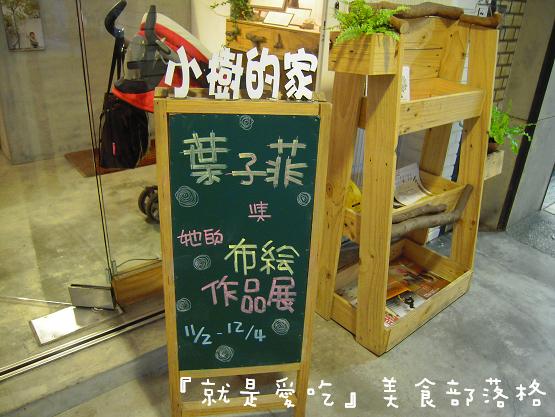 小樹的家
葉子菲
與
她的
布絵
作品展
11/2 - 12/4
『就是愛吃』美食部落格